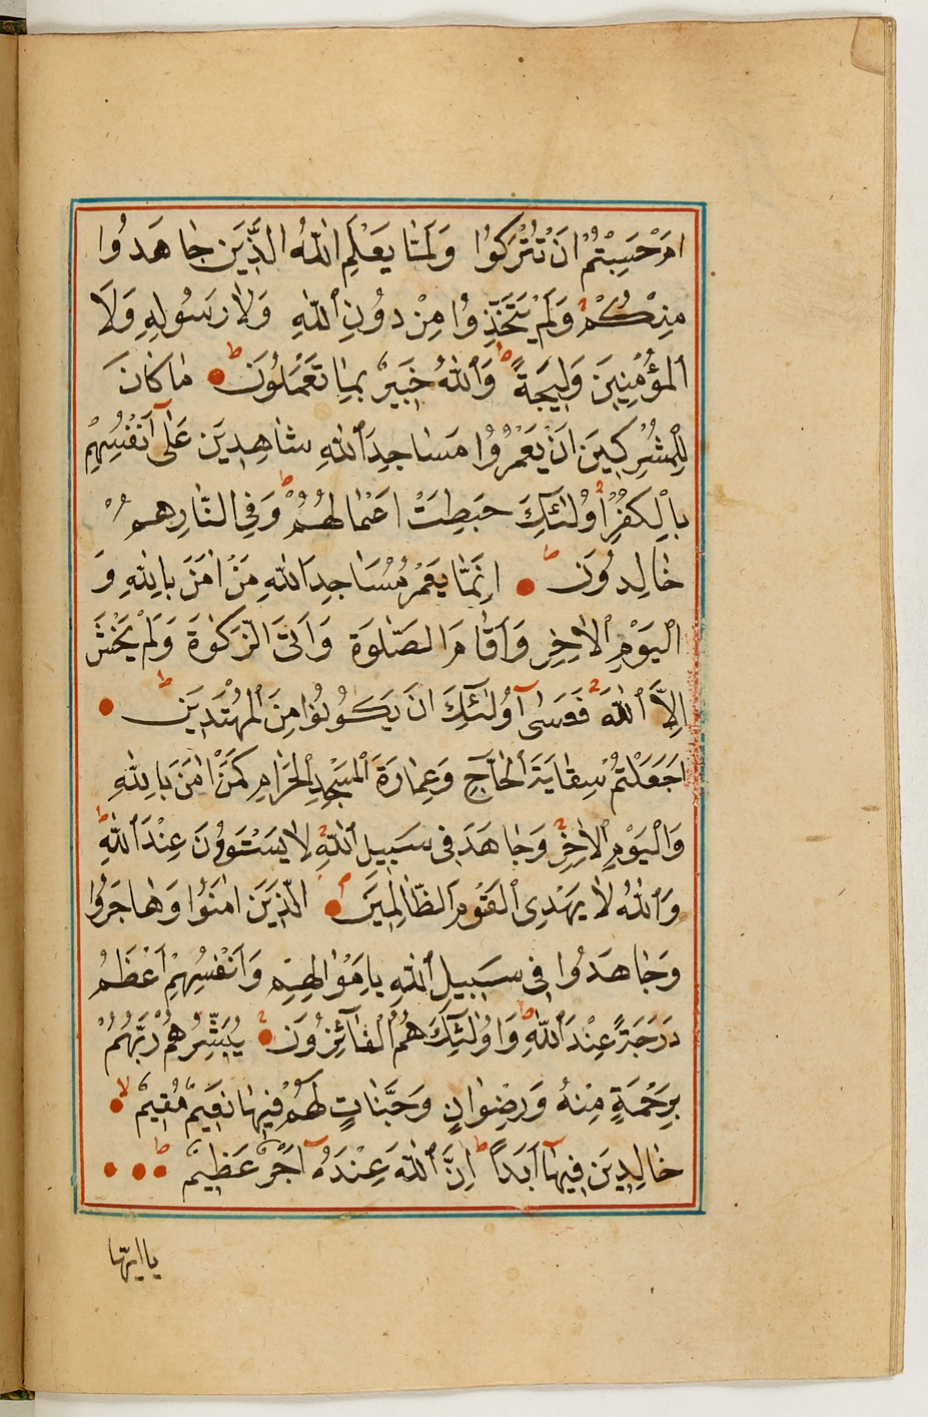 اَمْ حَسِبْتُمْ اَنْ تُتْرَكُوا وَلَمَّا يَعْلَمِ اللّٰهُ الَّذِينَ جَاهَدُوا
مِنْكُمْ وَلَمْ يَتَّخِذُوا مِنْ دُونِ اللّٰهِ وَلَا رَسُولِهِ وَلَا
الْمُؤْمِنِينَ وَلِيجَةً ط وَاللّٰهُ خَبِيرٌ بِمَا تَعْمَلُونَ ط مَا كَانَ
لِلْمُشْرِكِينَ اَنْ يَعْمُرُوا مَسَاجِدَ اللّٰهِ شَاهِدِينَ عَلٰٓى اَنْفُسِهِمْ
بِالْكُفْرِ اُولٰئِكَ حَبِطَتْ اَعْمَالُهُمْ ط وَفِي النَّارِ هُمْ
خَالِدُونَ ط اِنَّمَا يَعْمُرُ مَسَاجِدَ اللّٰهِ مَنْ اٰمَنَ بِاللّٰهِ وَ
الْيَوْمِ الْاٰخِرِ وَاَقَامَ الصَّلٰوةَ وَاٰتَى الزَّكٰوةَ وَلَمْ يَخْشَ
اِلَّا اللّٰهَ فَعَسٰٓى اُولٰئِكَ اَنْ يَكُونُوا مِنَ الْمُهْتَدِينَ ط
اَجَعَلْتُمْ سِقَايَةَ الْحَاجِّ وَعِمَارَةَ الْمَسْجِدِ الْحَرَامِ كَمَنْ اٰمَنَ بِاللّٰهِ
وَالْيَوْمِ الْاٰخِرِ وَجَاهَدَ فِي سَبِيلِ اللّٰهِ لَا يَسْتَوُونَ عِنْدَ اللّٰهِ ط
وَاللّٰهُ لَا يَهْدِي الْقَوْمَ الظَّالِمِينَ م الَّذِينَ اٰمَنُوا وَهَاجَرُوا
وَجَاهَدُوا فِي سَبِيلِ اللّٰهِ بِاَمْوَالِهِمْ وَاَنْفُسِهِمْ اَعْظَمُ
دَرَجَةً عِنْدَ اللّٰهِ ط وَاُولٰئِكَ هُمُ الْفَائِزُونَ يُبَشِّرُهُمْ رَبُّهُمْ
بِرَحْمَةٍ مِنْهُ وَرِضْوَانٍ وَجَنَّاتٍ لَهُمْ فِيهَا نَعِيمٌ مُقِيمٌ لا
خَالِدِينَ فِيهَٓا اَبَدًا ط اِنَّ اللّٰهَ عِنْدَهُٓ اَجْرٌ عَظِيمٌ ط
يا ايها